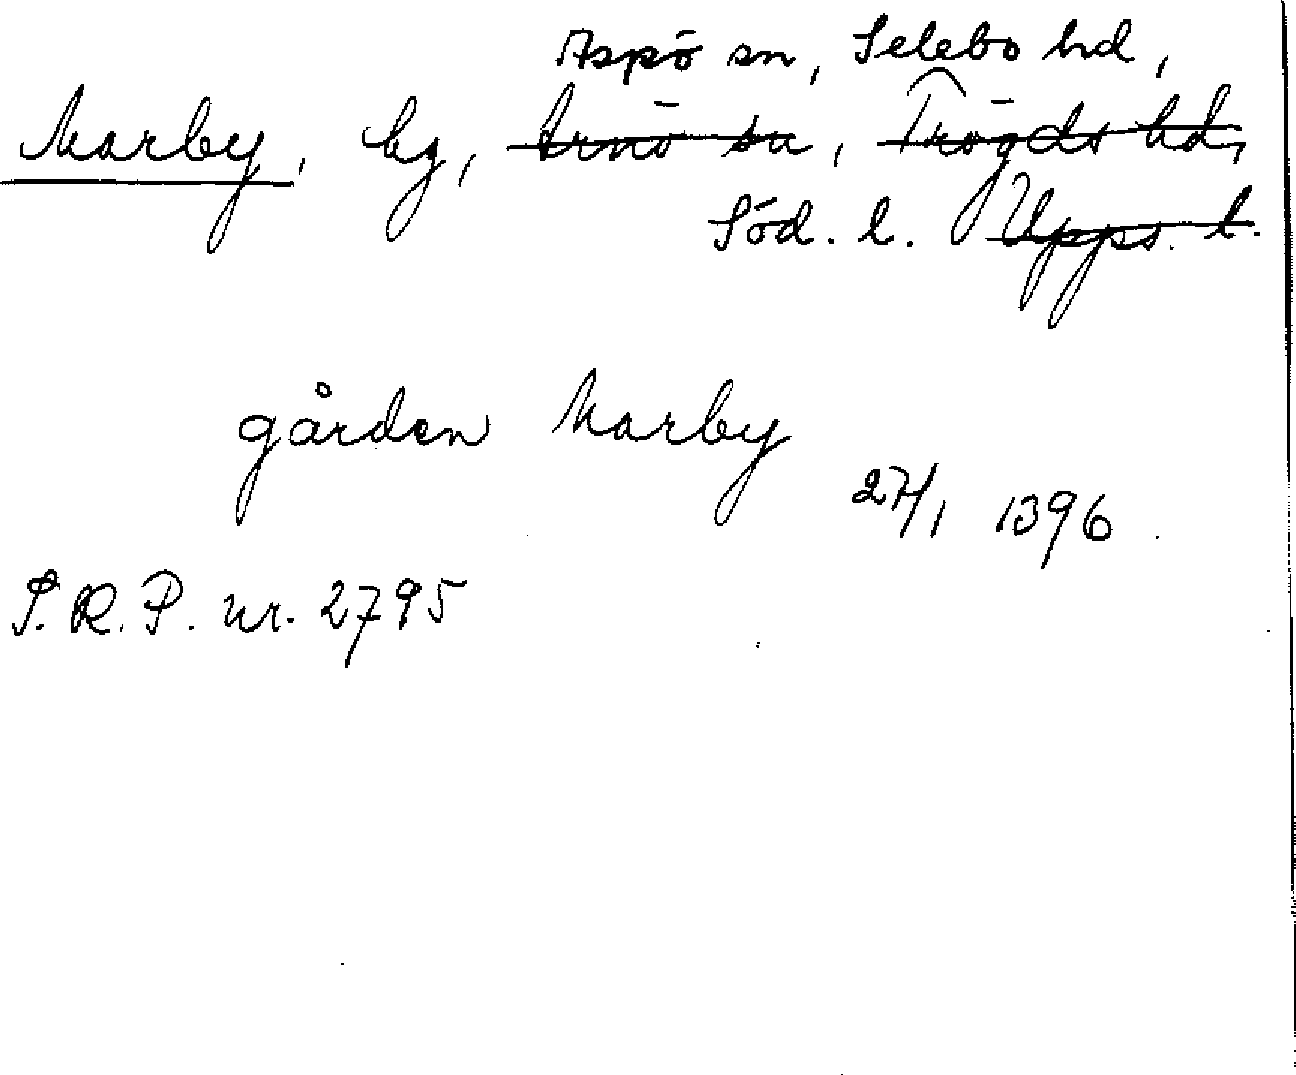 Aspö sn, Selebo hd,
Marby, by, Arnö sn, Trögds hd,
Söd. l. Upps. l.
gården Marby
27/1 1396.
S.R.P. nr. 2795